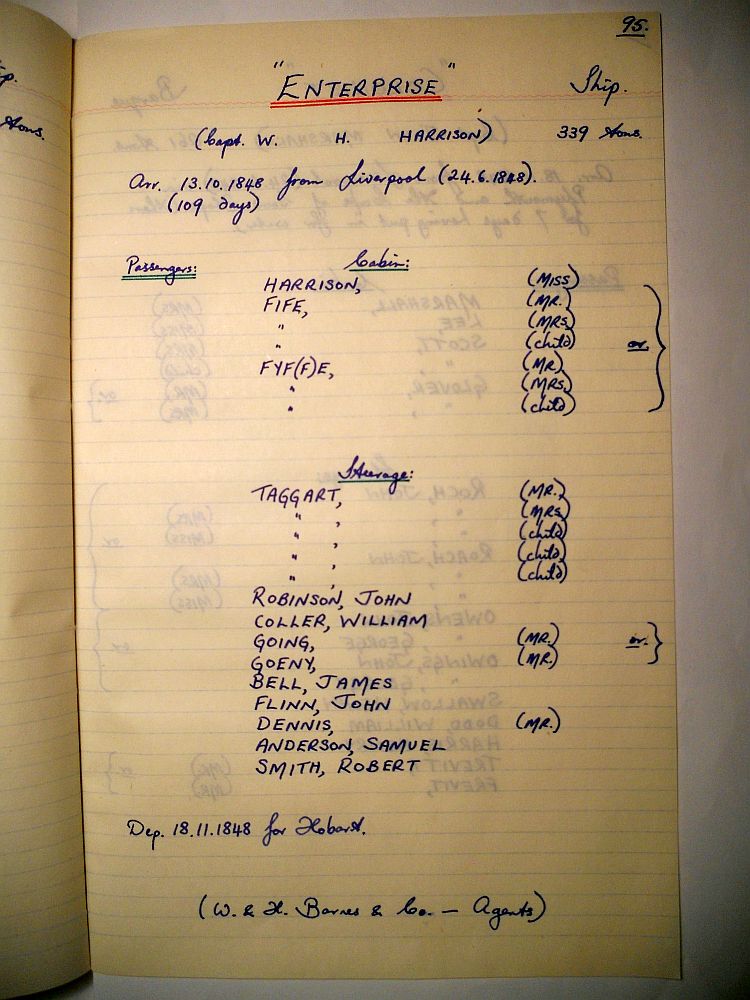 95.
"ENTERPRISE" Ship.
(Capt. W. H. HARRISON) 339 tons.
Arr. 13.10.1848 from Liverpool (24.6.1848).
(109 days)
Passengers: Cabin:
HARRISON, (MISS)
FIFE, (MR.)
" (MRS)
" (child) or.
FYF(F)E, (MR)
" (MRS.)
" (child)
Steerage:
TAGGART, (MR.)
" , (MRS)
" , (child)
" , (child)
" , (child)
ROBINSON, JOHN
COLLER, WILLIAM
GOING, (MR.) or.
GOENY, (MR.)
BELL, JAMES
FLINN, JOHN
DENNIS, (MR.)
ANDERSON, SAMUEL
SMITH, ROBERT
Dep. 18.11.1848 for Hobart.
(W. & H. Barnes & Co. — Agents)